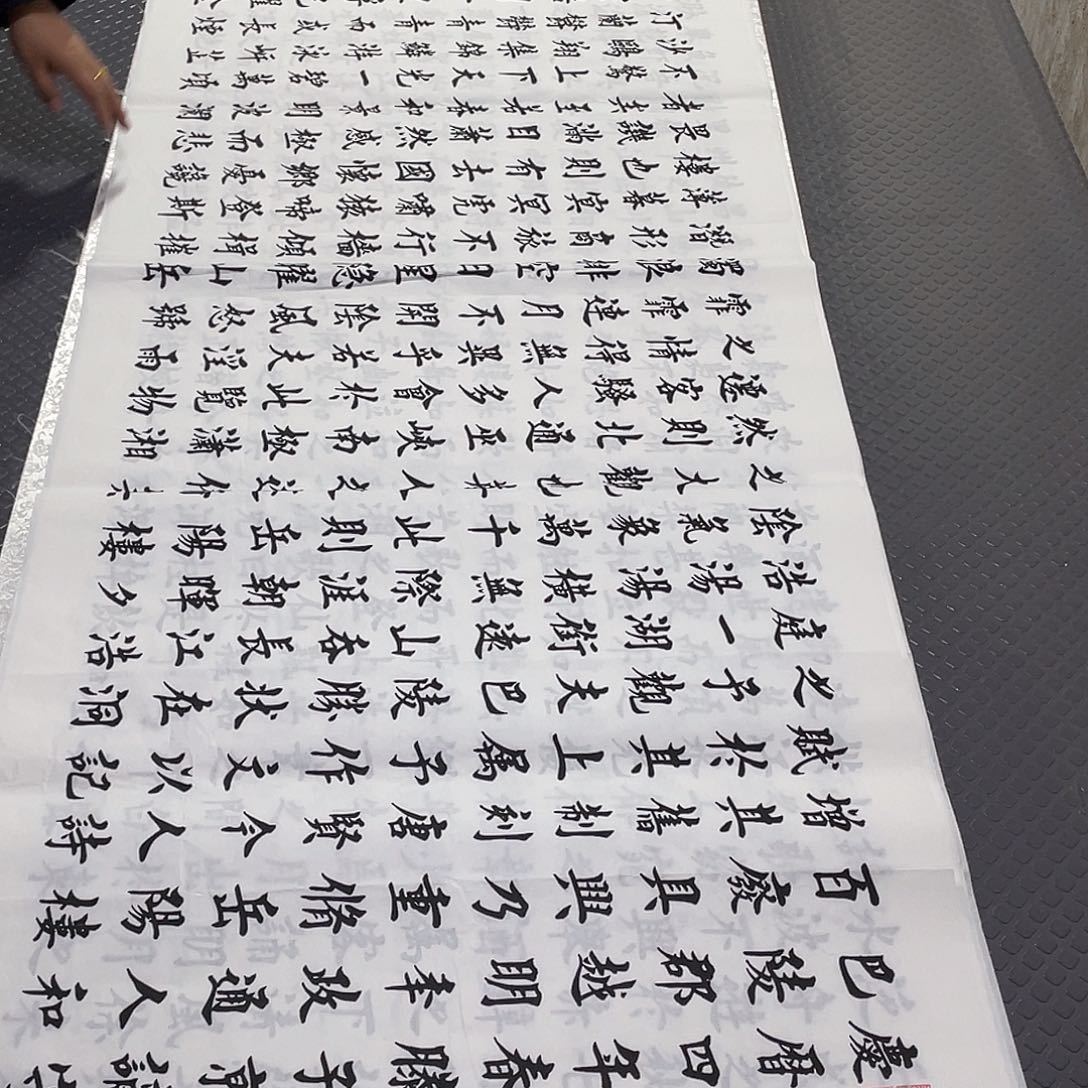 慶曆四年春滕子京謫守
巴陵郡越明年政通人和
百廢具興乃重脩岳陽樓
增其舊制刻唐賢今人詩
賦於其上屬予作文以記
之予觀夫巴陵勝狀在洞
庭一湖銜遠山吞長江浩
浩湯湯橫無際涯朝暉夕
陰氣象萬千此則岳陽樓
之大觀也前人之述備矣
然則北通巫峽南極瀟湘
遷客騷人多會於此覽物
之情得無異乎若夫淫雨
霏霏連月不開陰風怒號
濁浪排空日星隱耀山岳
潛形商旅不行檣傾楫摧
薄暮冥冥虎嘯猿啼登斯
樓也則有去國懷鄉憂讒
畏譏滿目蕭然感極而悲
者矣至若春和景明波瀾
不驚上下天光一碧萬頃
沙鷗翔集錦鱗游泳岸芷
汀蘭鬱鬱青青而或長煙